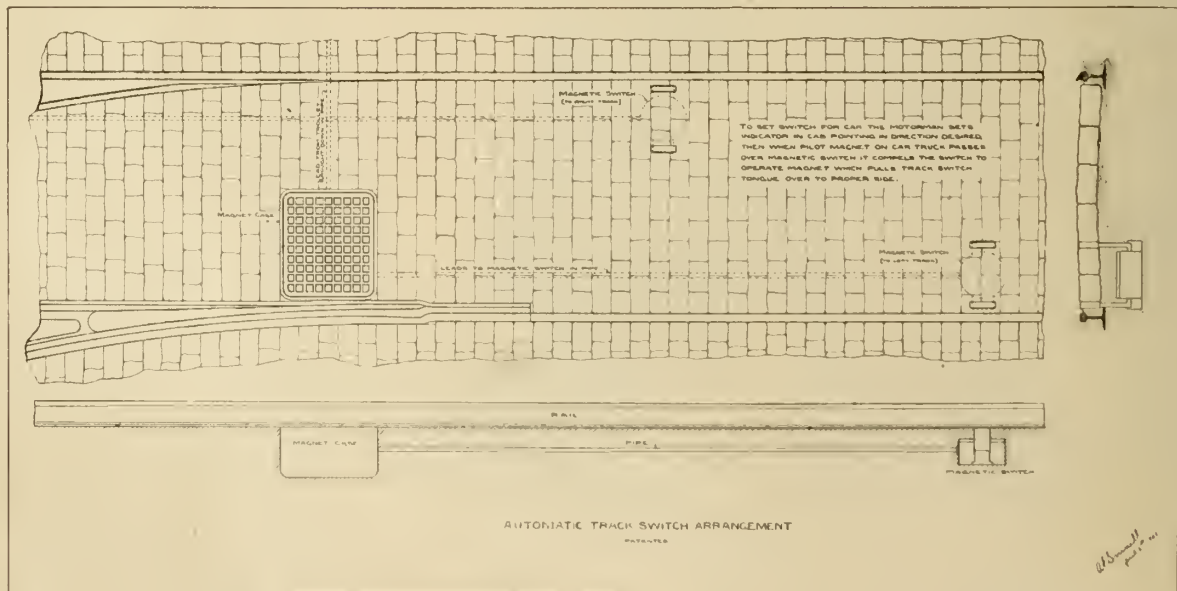 MAGNETIC SWITCH
(TO RIGHT TRACK)
TO SET SWITCH FOR CAR THE MOTORMAN SETS
INDICATOR IN CAB POINTING IN DIRECTION DESIRED,
THEN WHEN PILOT MAGNET ON CAR TRUCK PASSES
OVER MAGNETIC SWITCH IT COMPELS THE SWITCH TO
OPERATE MAGNET WHICH PULLS TRACK SWITCH
TONGUE OVER TO PROPER SIDE.
LEAD FROM TROLLEY
MAGNET CASE
MAGNETIC SWITCH
(TO LEFT TRACK)
LEADS TO MAGNETIC SWITCH IN PIPE
RAIL
MAGNET CASE
PIPE
MAGNETIC SWITCH
AUTOMATIC TRACK SWITCH ARRANGEMENT
PATENTED